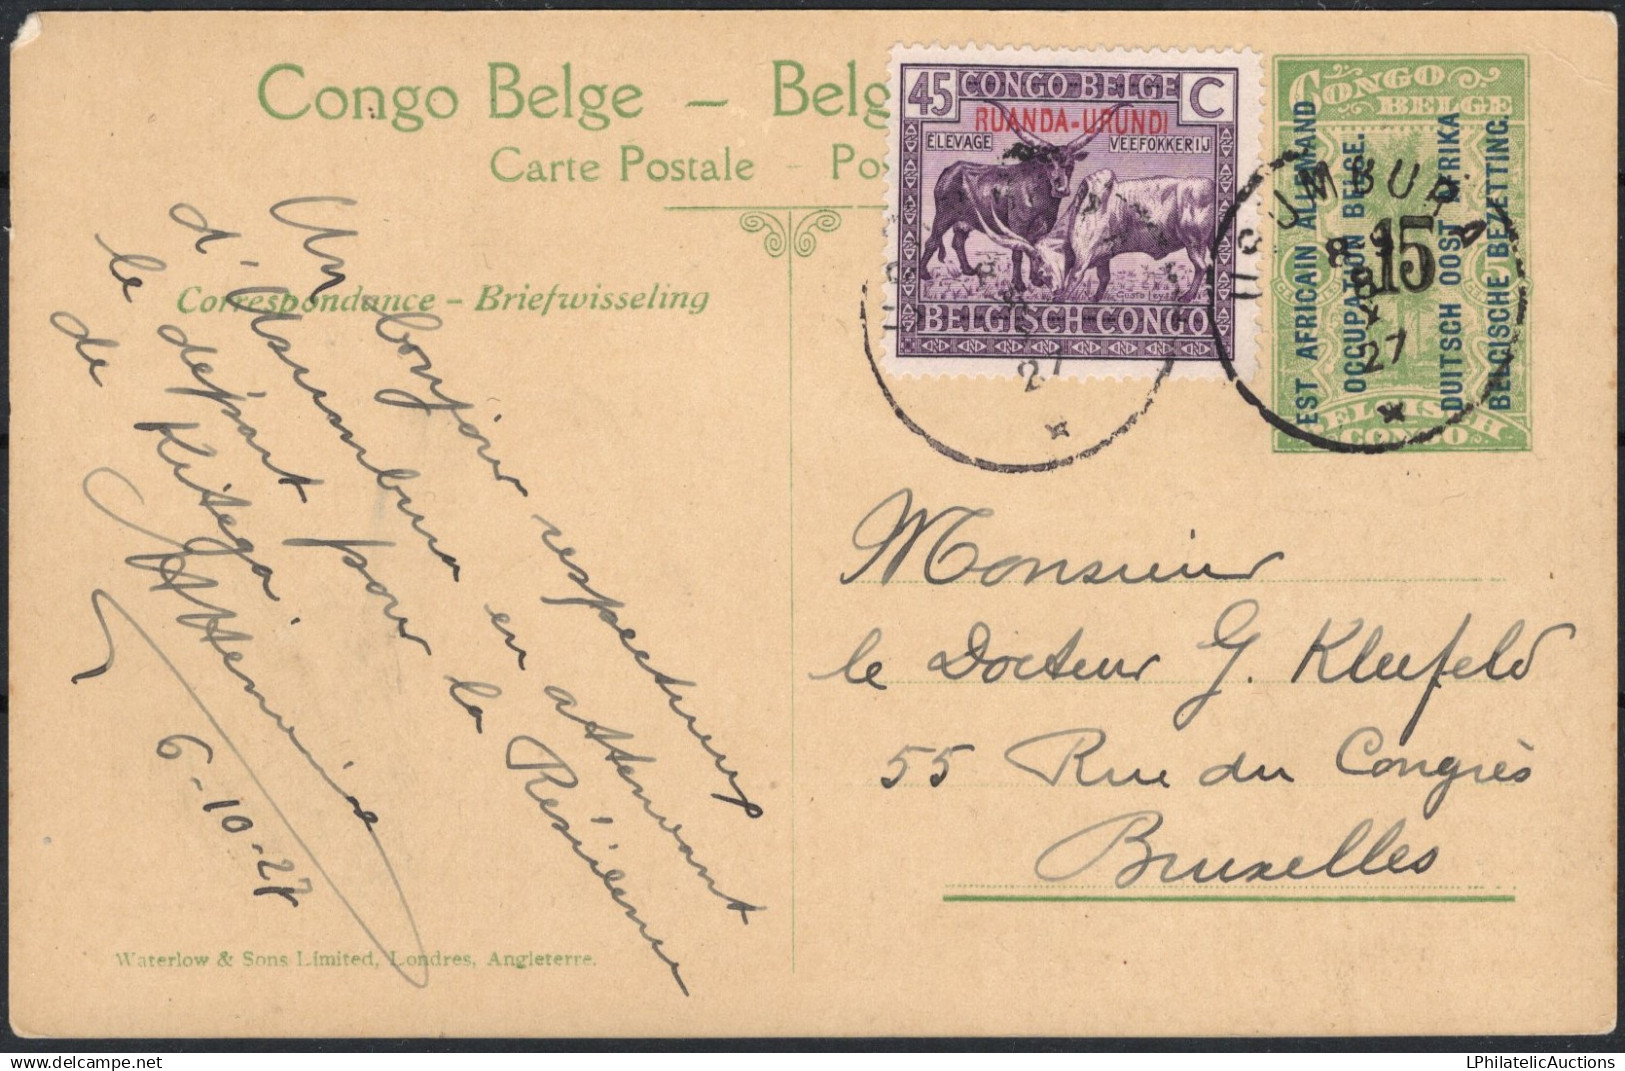 Congo Belge – Belg
Carte Postale – Pos
Correspondance – Briefwisseling
45 CONGO BELGE C
RUANDA-URUNDI
ELEVAGE VEEFOKKERIJ
BELGISCH CONGO
CONGO
BELGE
EST AFRICAIN ALLEMAND
OCCUPATION BELGE.
DUITSCH OOST AFRIKA
BELGISCHE BEZETTING.
15
BELGISCH
CONGO
USUMBURA
27
27
Un bonjour respectueux
d'Usumbura en attendant
le départ pour la Résidence
de Kitega.
6-10-27
Monsieur
le Docteur G. Kleefeld
55 Rue du Congrès
Bruxelles
Waterlow & Sons Limited, Londres, Angleterre.
LPhilatelicAuctions